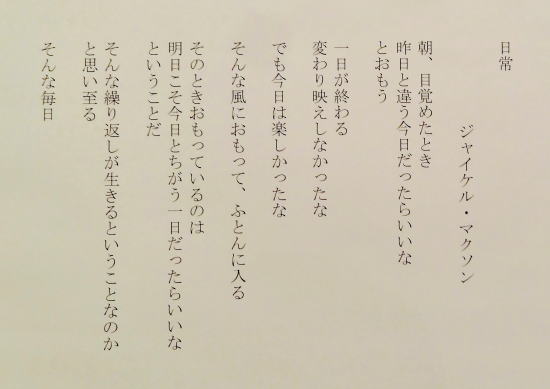 日常
ジャイケル・マクソン
朝、目覚めたとき
昨日と違う今日だったらいいな
とおもう
一日が終わる
変わり映えしなかったな
でも今日は楽しかったな
そんな風におもって、ふとんに入る
そのときおもっているのは
明日こそ今日とちがう一日だったらいいな
ということだ
そんな繰り返しが生きるということなのか
と思い至る
そんな毎日